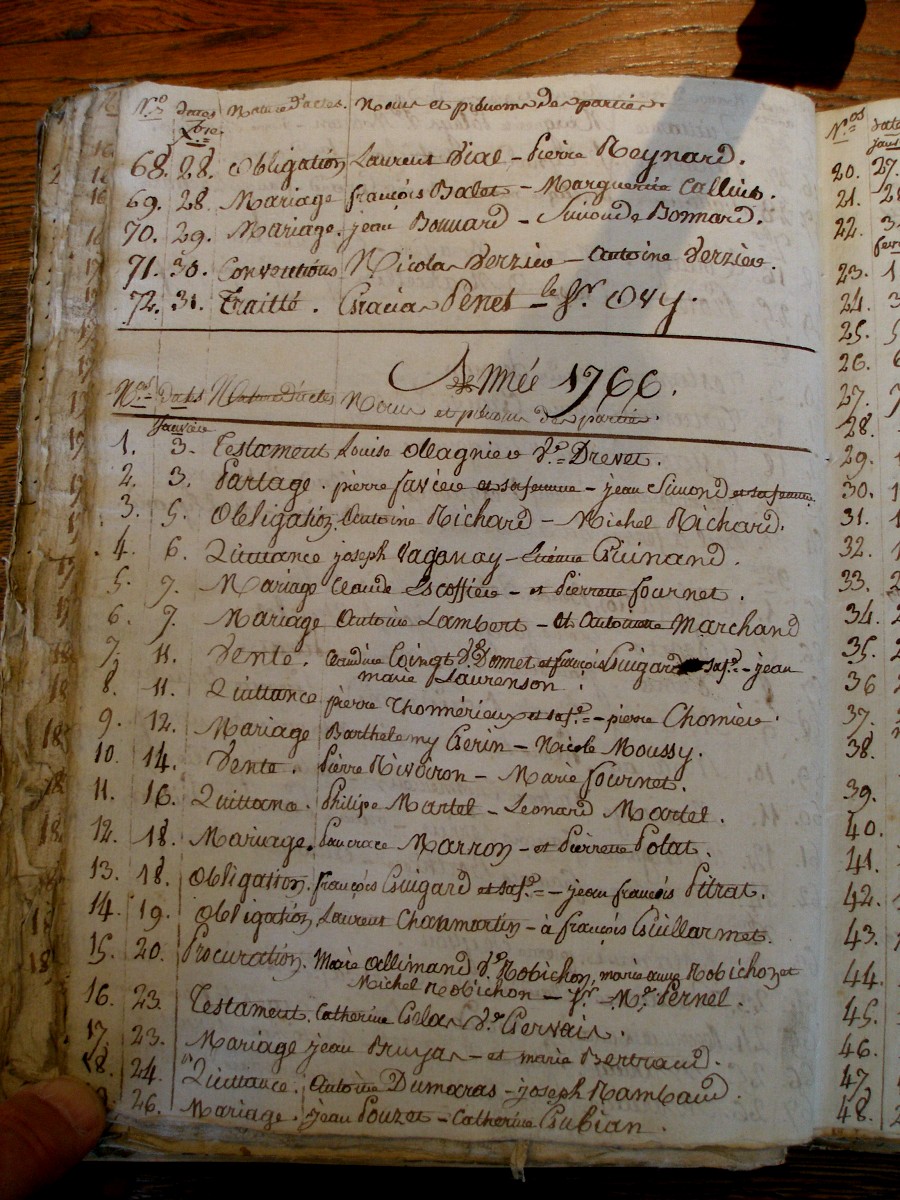 Nos dates Nature d'actes. Noms et prénoms des parties
Xbre.
68. 28. Obligation Laurent Vial – Pierre Reynard.
69. 28. Mariage françois Balet – Marguerite
70. 29. Mariage. jean Bonnard – Simonde Bonnard.
71. 30. Conventions Nicolas Verzier – Antoine Verzier.
72. 31. Traitté. Penet – le Sr.
Année 1766.
Nos dates Nature d'actes Noms et prénoms des parties.
Janvier
1. 3. Testament Louise Ollagnier Ve. Drevet.
2. 3. Partage. pierre favier et sa femme – jean Simond et sa femme.
3. 5. Obligation Antoine Richard – Michel Richard.
4. 6. Quittance joseph Vaganay – Etienne Guinand.
5. 7. Mariage Claude Escoffier – et Pierrette fournet.
6. 7. Mariage Antoine Lambert – et Antoinette Marchand
7. 11. Vente. Claudine Coingt Ve. Domet et françois Guigard sa fe. – jean
marie Laurenson.
8. 11. Quittance pierre Thonnérieux et sa fe. – pierre Chomier.
9. 12. Mariage Barthelemy Gerin – Nicole Moussy.
10. 14. Vente. Pierre Rivoiron – Marie fournet.
11. 16. Quittance. Philipe Martel – Leonard Martel.
12. 18. Mariage. Pancrace Marron – et Pierrette Polat.
13. 18. Obligation. françois Guigard et sa fe. – jean françois Pitrat.
14. 19. Obligation Laurent Chanamartin – à françois Guillarmet.
15. 20. Procuration. Marie Allimand Ve. Robichon, marie anne Robichon et
Michel Robichon – Pr. Me. Pernel.
16. 23. Testament. Catherine Gelas Ve. Gervais.
17. 23. Mariage jean Bruyas – et marie Bertrand.
18. 24. Quittance. Antoine Dumaras – joseph Rambaud.
26. Mariage. jean Pouzet – Catherine Gubian.
Nos
20. 27.
21.
22.
23. 1
24. 3
25. 5
26.
27.
28.
29.
30.
31.
32.
33.
34.
35.
36
37.
38.
39.
40.
41.
42.
43.
44.
45.
46.
47.
48.